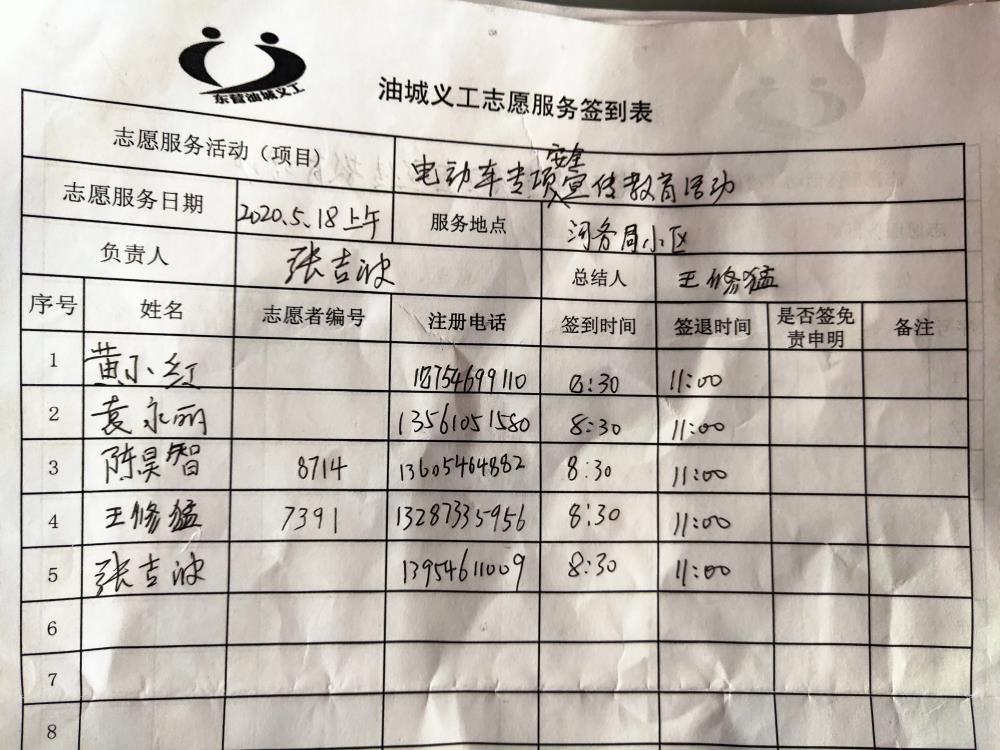 东营油城义工
油城义工志愿服务签到表
志愿服务活动（项目） 电动车专项安全宣传教育活动
志愿服务日期 2020.5.18上午 服务地点 河务局小区
负责人 张吉波 总结人 王修猛
序号 姓名 志愿者编号 注册电话 签到时间 签退时间 是否签免责申明 备注
1 黄小红 18754699110 8:30 11:00
2 袁永丽 13561051580 8:30 11:00
3 陈昊智 8714 13605464882 8:30 11:00
4 王修猛 7391 13287335956 8:30 11:00
5 张吉波 13954611009 8:30 11:00
6
7
8